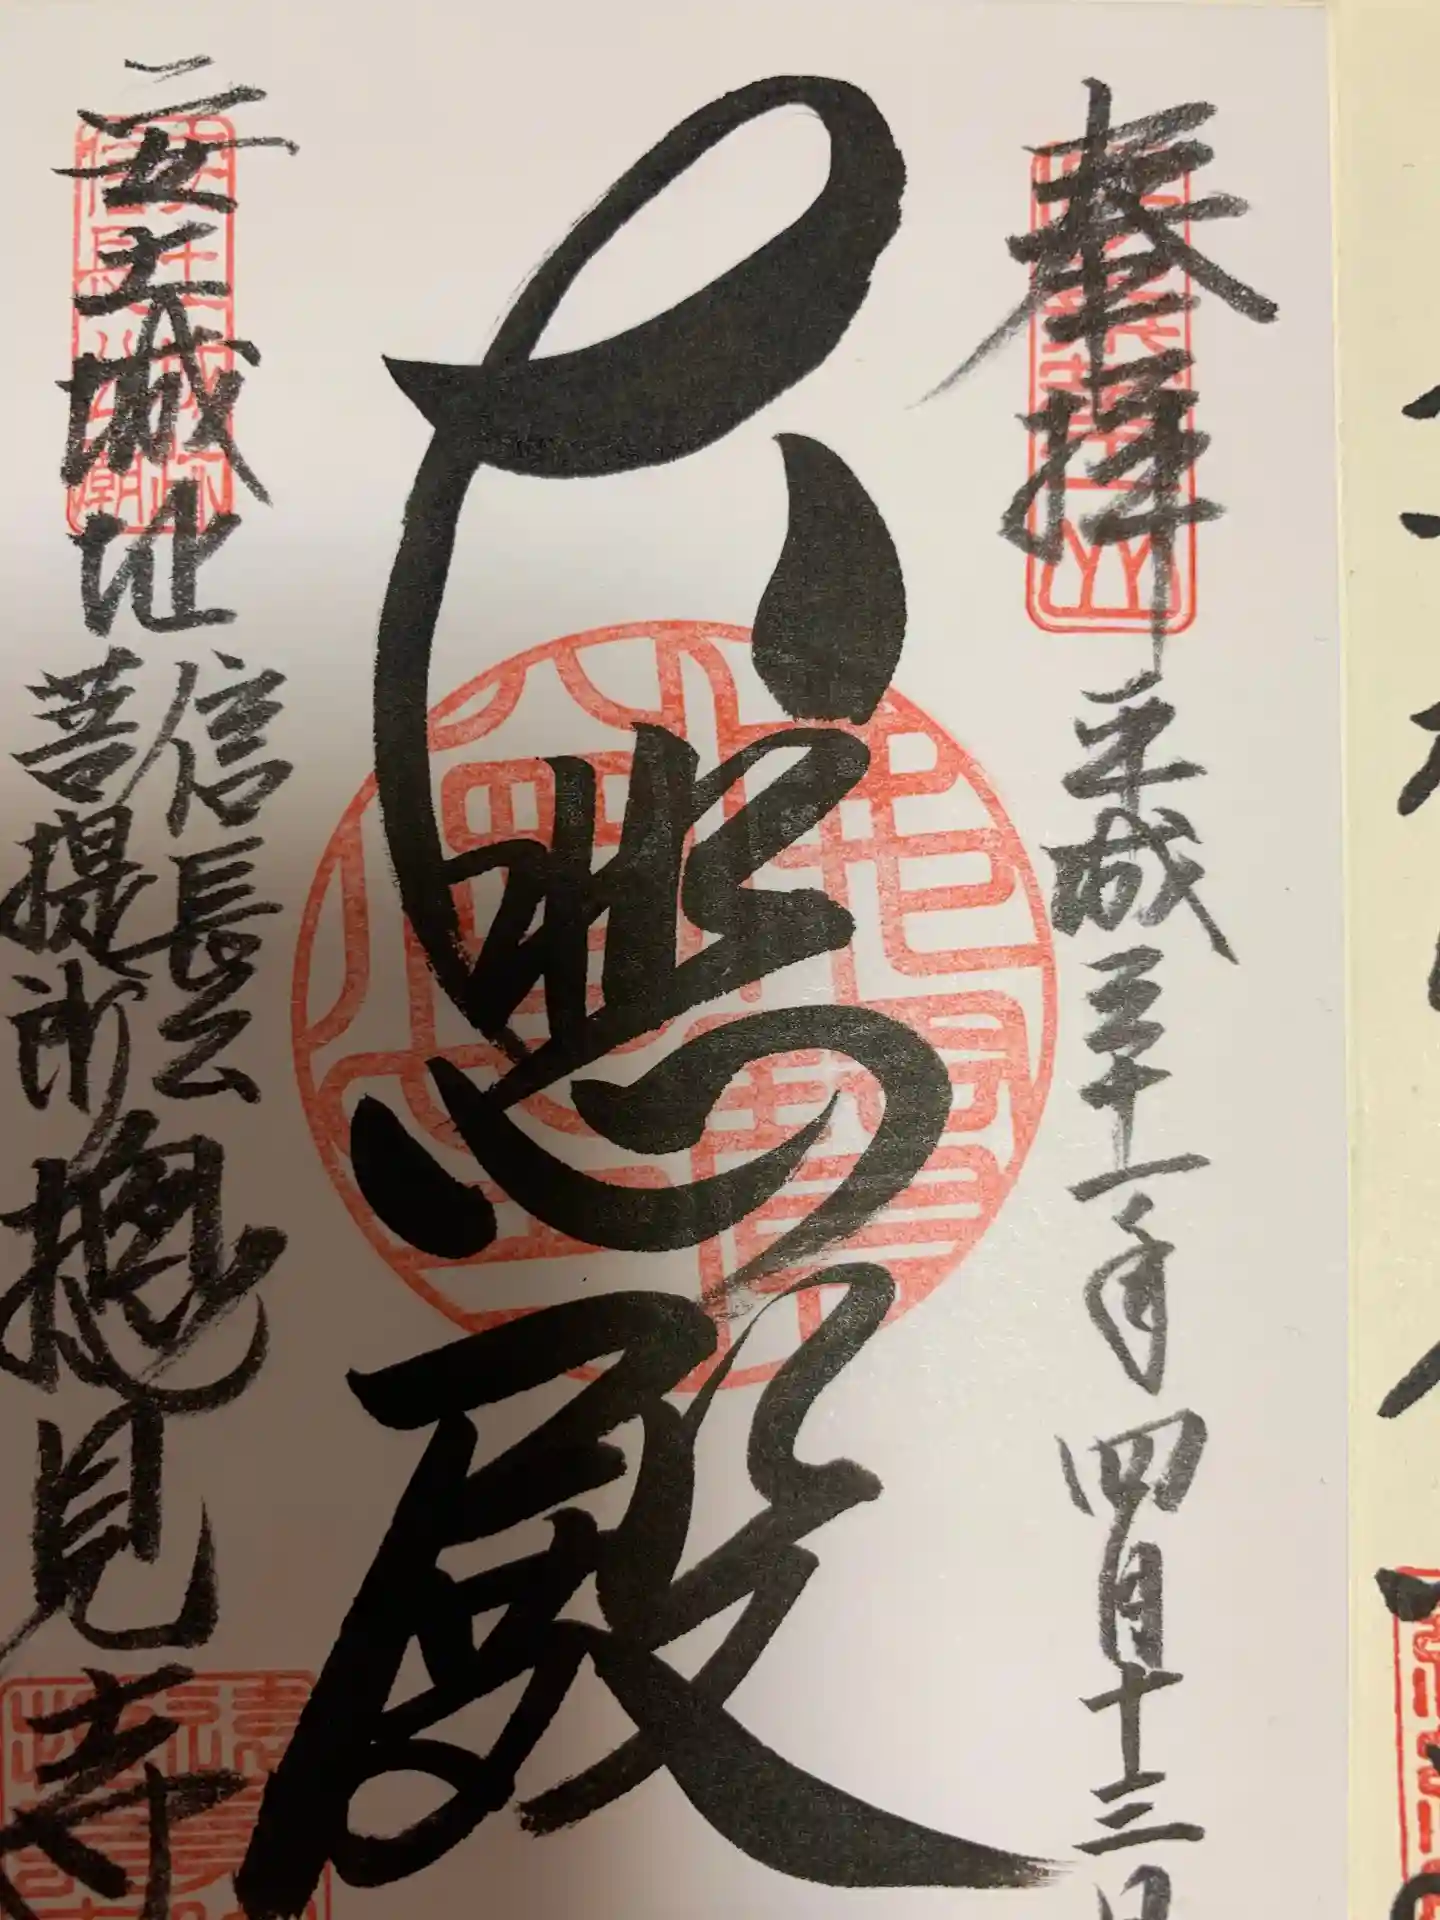 奉拝 平成三十一年四月十三日
大悲殿
安土城址
信長公
菩提所
摠見寺